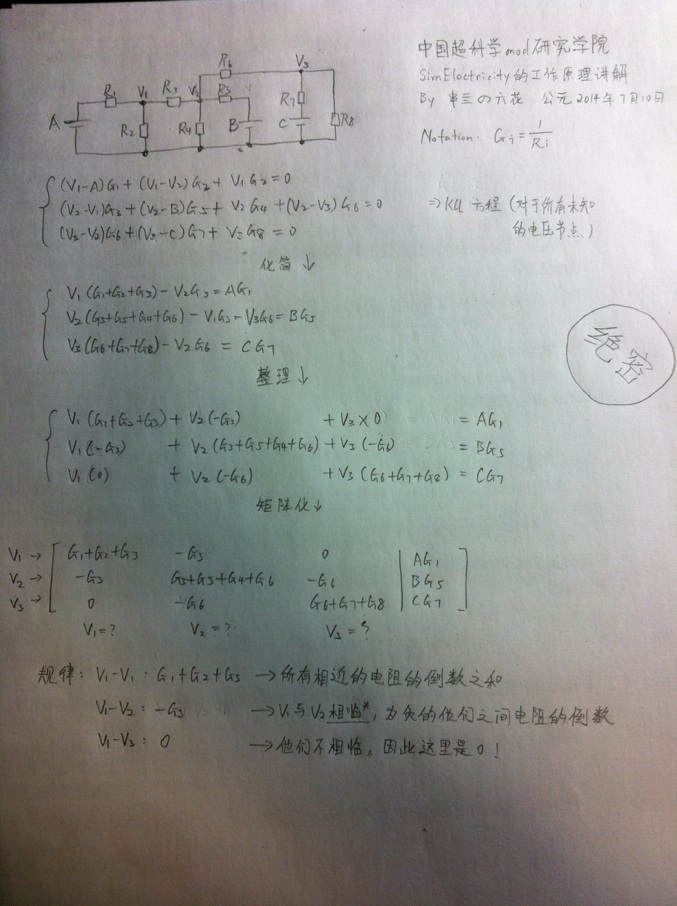 中国超科学mod研究学院
SimElectricity的工作原理讲解
By 半三の六花 公元2014年7月10日
Notation: Gi = 1/Ri
R1 V1 R3 V2 R6 R5 V3
A R2 R4 B R7 C R8
(V1-A)G1 + (V1-V2)G3 + V1G2 = 0
(V2-V1)G3 + (V2-B)G5 + V2G4 + (V2-V3)G6 = 0
(V3-V2)G6 + (V3-C)G7 + V3G8 = 0
⇒ KCL 方程 (对于所有未知的电压节点)
化简 ↓
V1(G1+G2+G3) - V2G3 = AG1
V2(G3+G5+G4+G6) - V1G3 - V3G6 = BG5
V3(G6+G7+G8) - V2G6 = CG7
整理 ↓
V1(G1+G2+G3) + V2(-G3) + V3×0 = AG1
V1(-G3) + V2(G3+G5+G4+G6) + V3(-G6) = BG5
V1(0) + V2(-G6) + V3(G6+G7+G8) = CG7
矩阵化 ↓
V1 → G1+G2+G3 -G3 0 AG1
V2 → -G3 G3+G5+G4+G6 -G6 BG5
V3 → 0 -G6 G6+G7+G8 CG7
V1=? V2=? V3=?
绝密
规律: V1-V1: G1+G2+G3 → 所有相近的电阻的倒数之和
V1-V2: -G3 → V1与V2相临*, 为负的他们之间电阻的倒数
V1-V3: 0 → 他们不相临, 因此这里是0!